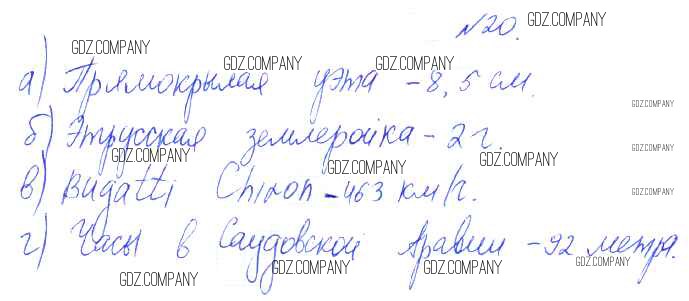 №20. GDZ.COMPANY
GDZ.COMPANY GDZ.COMPANY GDZ.COMPANY
а) Прямокрылая уэта - 8,5 см.
GDZ.COMPANY
б) Этрусская землеройка - 2 г.
GDZ.COMPANY GDZ.COMPANY GDZ.COMPANY GDZ.COMPANY
в) Bugatti Chiron - 463 км/г.
GDZ.COMPANY
г) Часы в Саудовской Аравии - 92 метра.
GDZ.COMPANY GDZ.COMPANY GDZ.COMPANY GDZ.COMPANY